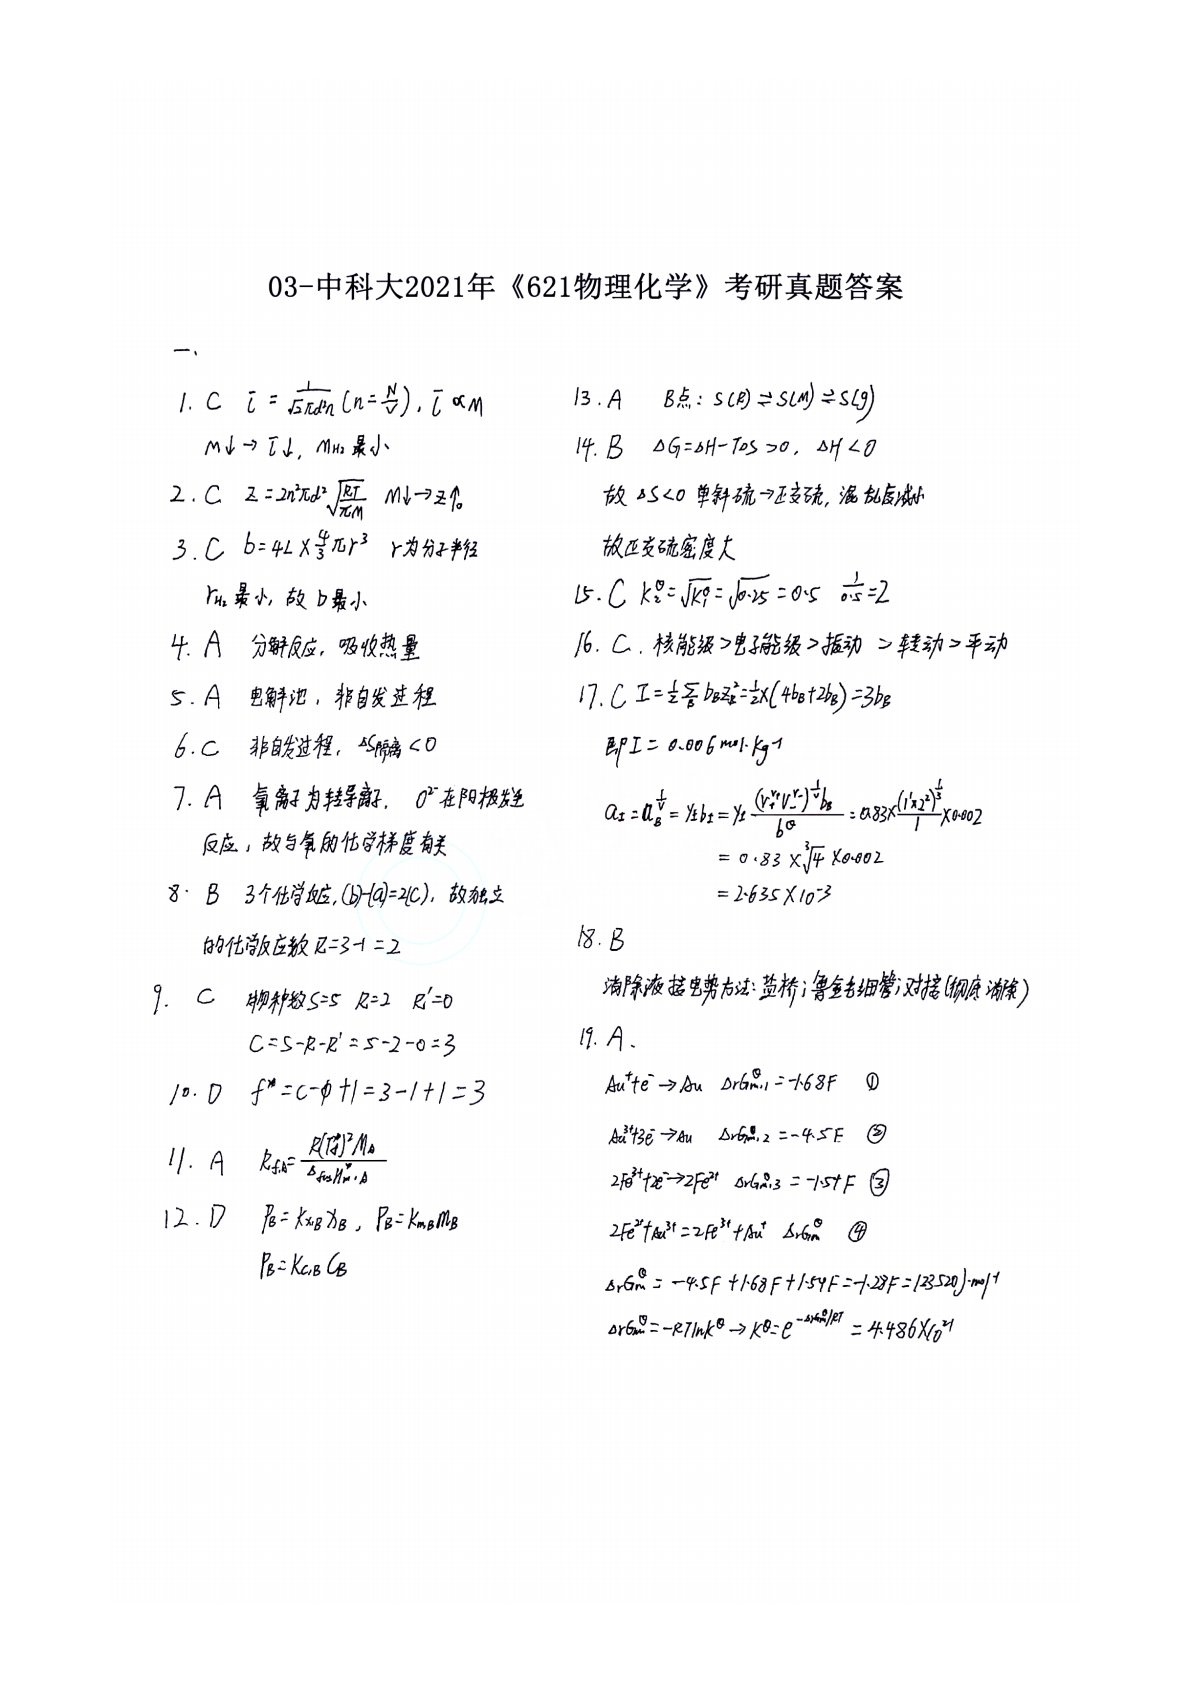 03-中科大2021年《621物理化学》考研真题答案
一、
1. C l̄ = 1/(√2πd²n) (n=N/V), l̄ ∝ M
M↓→l̄↓, M_H₂最小
2. C Z=2n²πd²√(RT/πM) M↓→Z↑。
3. C b=4L×4/3πr³ r为分子半径
r_H₂最小, 故b最小
4. A 分解反应, 吸收热量
5. A 电解池, 非自发过程
6. C 非自发过程, ΔS隔离<0
7. A 氧离子为转导离子, O²⁻在阳极发生
反应, 故与氧的化学梯度有关
8. B 3个化学反应, (b)-(a)=2(c), 故独立
的化学反应数R=3-1=2
9. C 物种数S=5 R=2 R'=0
C=S-R-R'=5-2-0=3
10. D f*=C-ϕ+1=3-1+1=3
11. A K_f,A=R(T_f*)²M_A/Δ_fusH*_m,A
12. D P_B=K_x,B x_B, P_B=K_m,B m_B
P_B=K_c,B C_B
13. A B点: S(R)⇌S(M)⇌S(g)
14. B ΔG=ΔH-TΔS>0, ΔH<0
故ΔS<0 单斜硫→正交硫, 混乱度减小
故正交硫密度大
15. C K₂^θ=√K₁^θ=√0.25=0.5 1/0.5=2
16. C. 核能级>电子能级>振动>转动>平动
17. C I=1/2 Σ_B b_B Z_B²=1/2×(4b_B+2b_B)=3b_B
即I=0.006mol·kg⁻¹
a_±=a_B^(1/ν)=γ_±b_±=γ_± (ν₊^ν₊ν₋^ν₋)^(1/ν) b_B/b^θ=0.83×(1¹×2²)^(1/3)/1×0.002
=0.83×∛4×0.002
=2.635×10⁻³
18. B
消除液接电势方法: 盐桥; 鲁金毛细管; 对接(彻底消除)
19. A.
Au⁺+e⁻→Au ΔrG^θ_m,1=-1.68F ①
Au³⁺+3e⁻→Au ΔrG^θ_m,2=-4.5F ②
2Fe³⁺+2e⁻→2Fe²⁺ ΔrG^θ_m,3=-1.54F ③
2Fe²⁺+Au³⁺=2Fe³⁺+Au⁺ ΔrG_m^θ ④
ΔrG_m^θ=-4.5F+1.68F+1.54F=-1.28F=123520J·mol⁻¹
ΔrG_m^θ=-RTlnK^θ→K^θ=e^(-ΔrG_m^θ/RT)=4.486×10²¹